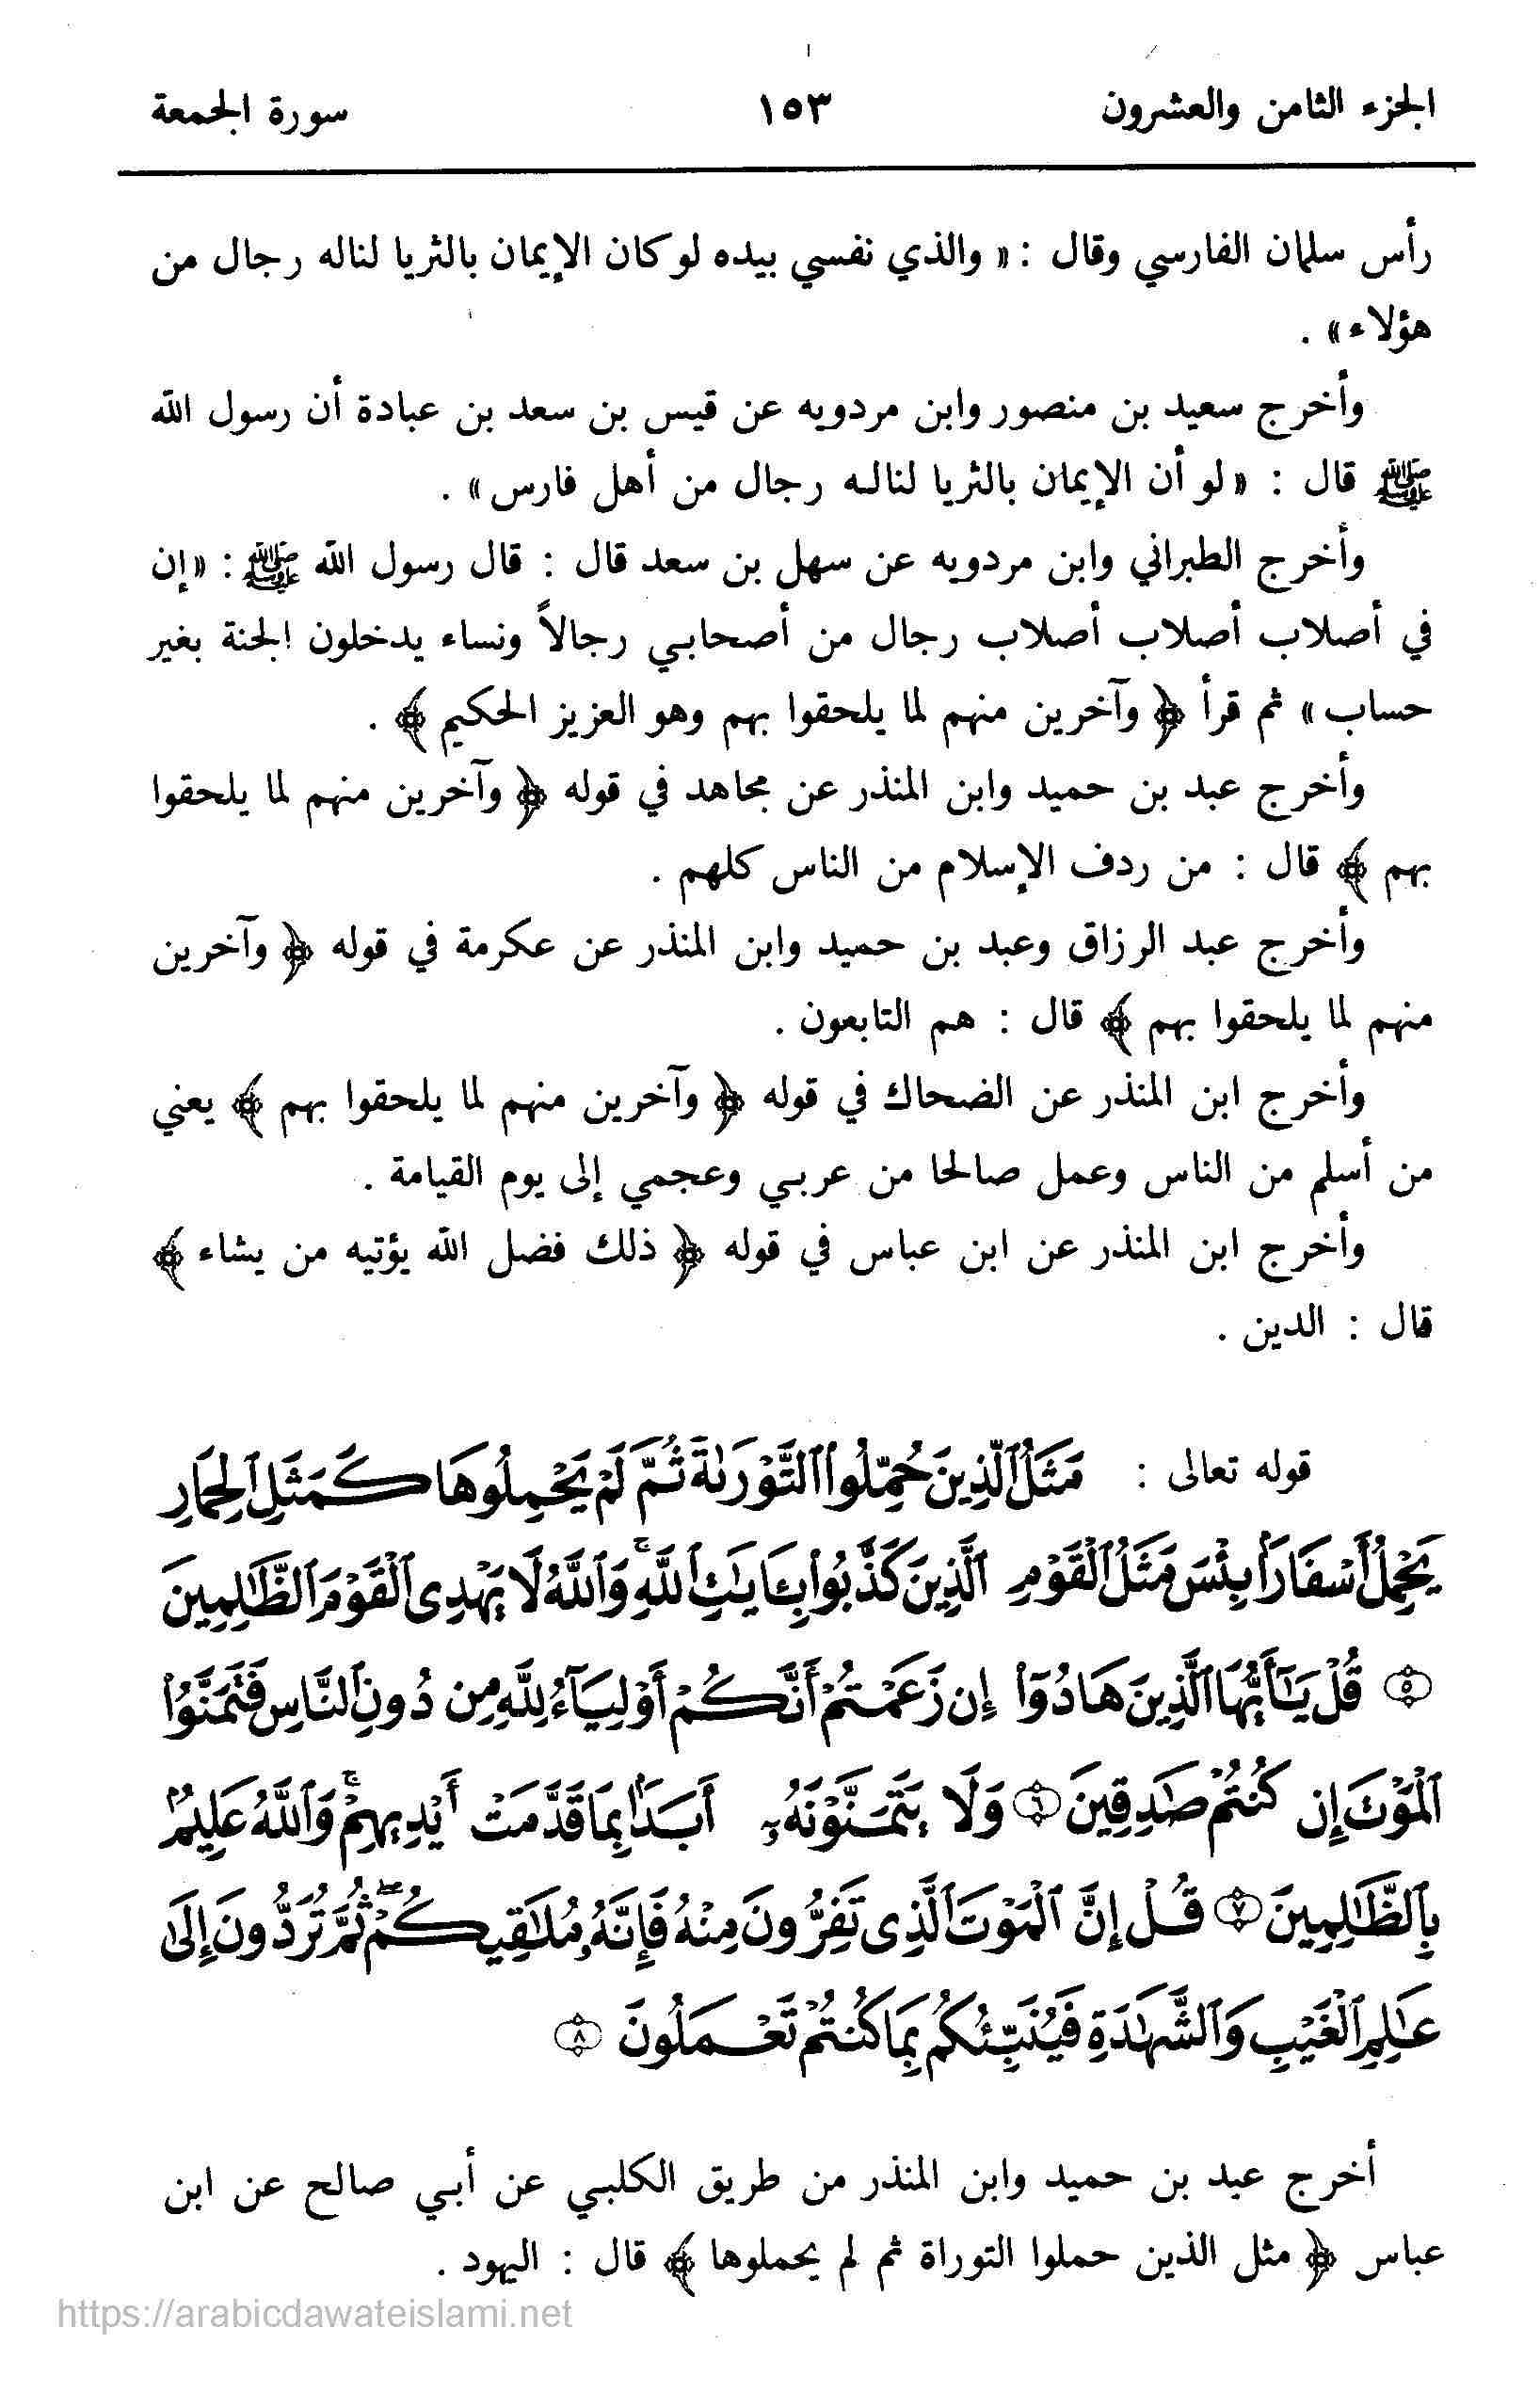 الجزء الثامن والعشرون ١٥٣ سورة الجمعة
رأس سلمان الفارسي وقال : « والذي نفسي بيده لو كان الإيمان بالثريا لناله رجال من
هؤلاء » .
وأخرج سعيد بن منصور وابن مردويه عن قيس بن سعد بن عبادة أن رسول الله
ﷺ قال : « لو أن الإيمان بالثريا لناله رجال من أهل فارس » .
وأخرج الطبراني وابن مردويه عن سهل بن سعد قال : قال رسول الله ﷺ : « إن
في أصلاب أصلاب أصلاب رجال من أصحابي رجالاً ونساء يدخلون الجنة بغير
حساب » ثم قرأ ﴿ وآخرين منهم لما يلحقوا بهم وهو العزيز الحكيم ﴾ .
وأخرج عبد بن حميد وابن المنذر عن مجاهد في قوله ﴿ وآخرين منهم لما يلحقوا
بهم ﴾ قال : من ردف الإسلام من الناس كلهم .
وأخرج عبد الرزاق وعبد بن حميد وابن المنذر عن عكرمة في قوله ﴿ وآخرين
منهم لما يلحقوا بهم ﴾ قال : هم التابعون .
وأخرج ابن المنذر عن الضحاك في قوله ﴿ وآخرين منهم لما يلحقوا بهم ﴾ يعني
من أسلم من الناس وعمل صالحا من عربي وعجمي إلى يوم القيامة .
وأخرج ابن المنذر عن ابن عباس في قوله ﴿ ذلك فضل الله يؤتيه من يشاء ﴾
قال : الدين .
قوله تعالى : مَثَلُ ٱلَّذِينَ حُمِّلُوا۟ ٱلتَّوْرَىٰةَ ثُمَّ لَمْ يَحْمِلُوهَا كَمَثَلِ ٱلْحِمَارِ
يَحْمِلُ أَسْفَارًۢا بِئْسَ مَثَلُ ٱلْقَوْمِ ٱلَّذِينَ كَذَّبُوا۟ بِـَٔايَـٰتِ ٱللَّهِ ۚ وَٱللَّهُ لَا يَهْدِى ٱلْقَوْمَ ٱلظَّـٰلِمِينَ
٥ قُلْ يَـٰٓأَيُّهَا ٱلَّذِينَ هَادُوٓا۟ إِن زَعَمْتُمْ أَنَّكُمْ أَوْلِيَآءُ لِلَّهِ مِن دُونِ ٱلنَّاسِ فَتَمَنَّوُا۟
ٱلْمَوْتَ إِن كُنتُمْ صَـٰدِقِينَ ٦ وَلَا يَتَمَنَّوْنَهُۥٓ أَبَدًۢا بِمَا قَدَّمَتْ أَيْدِيهِمْ ۚ وَٱللَّهُ عَلِيمٌۢ
بِٱلظَّـٰلِمِينَ ٧ قُلْ إِنَّ ٱلْمَوْتَ ٱلَّذِى تَفِرُّونَ مِنْهُ فَإِنَّهُۥ مُلَـٰقِيكُمْ ۖ ثُمَّ تُرَدُّونَ إِلَىٰ
عَـٰلِمِ ٱلْغَيْبِ وَٱلشَّهَـٰدَةِ فَيُنَبِّئُكُم بِمَا كُنتُمْ تَعْمَلُونَ ٨
أخرج عبد بن حميد وابن المنذر من طريق الكلبي عن أبي صالح عن ابن
عباس ﴿ مثل الذين حملوا التوراة ثم لم يحملوها ﴾ قال : اليهود .
https://arabicdawateislami.net